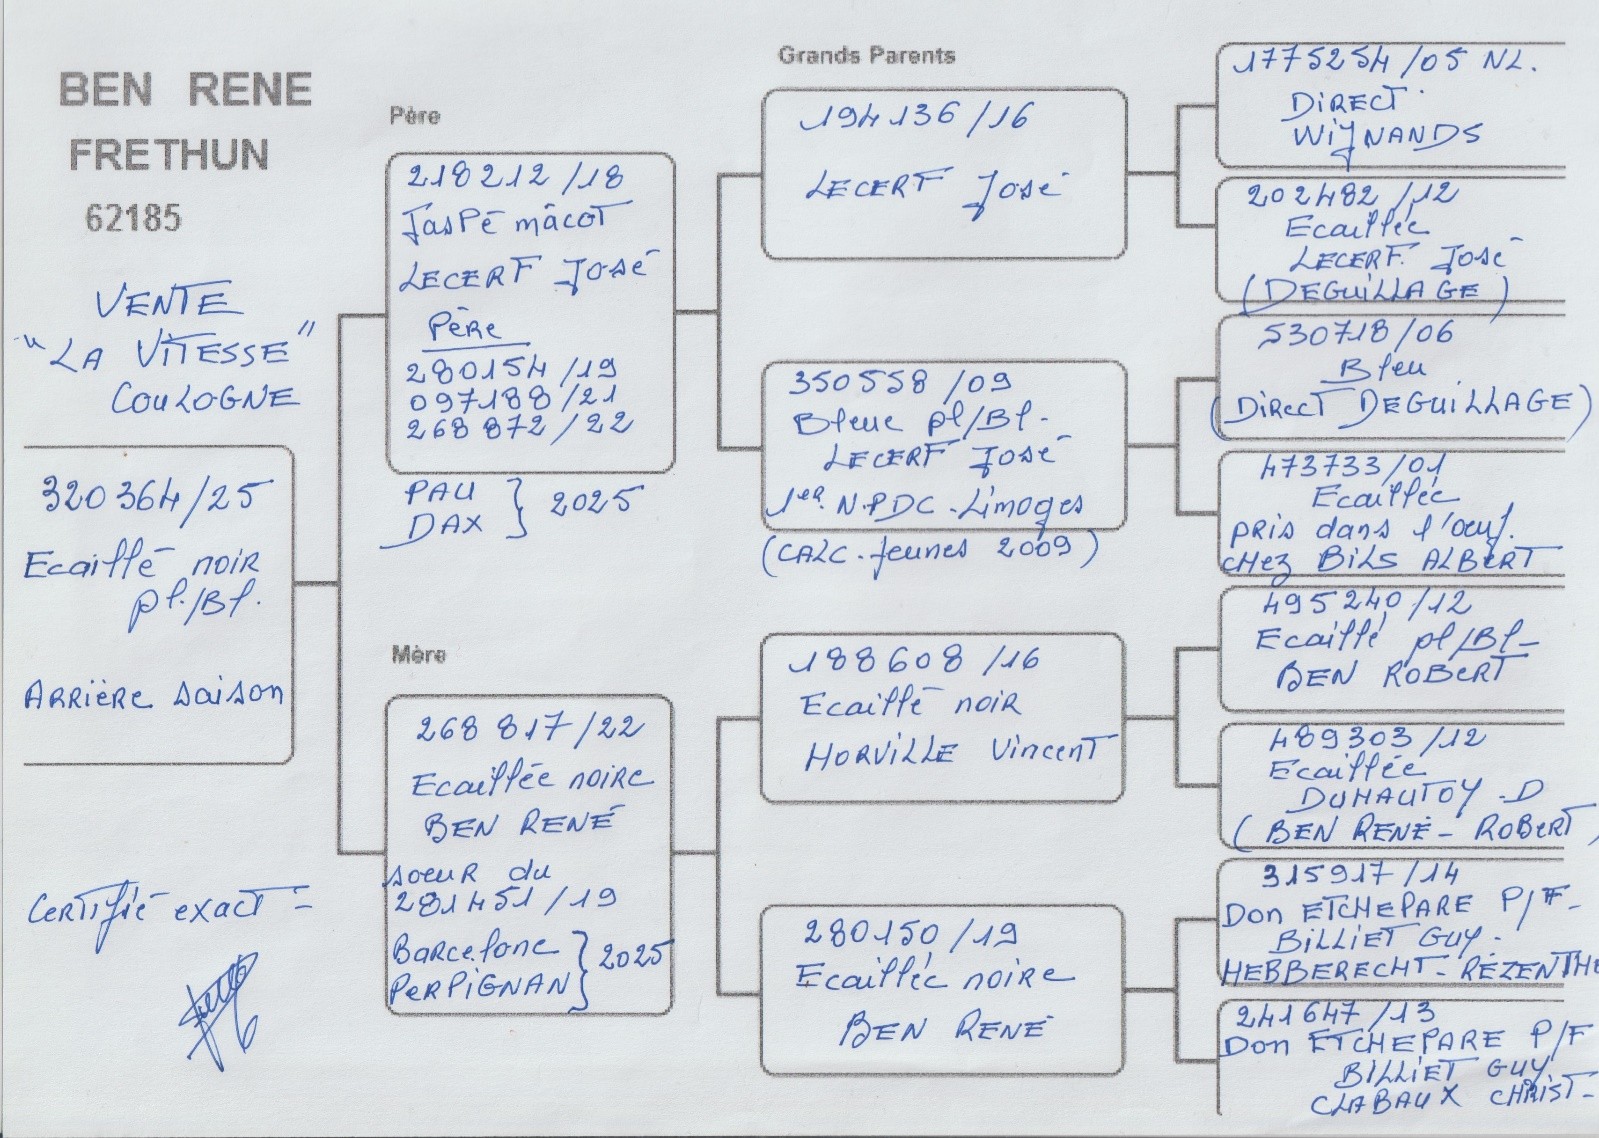 BEN RENE
FRETHUN
62185
VENTE
"LA VITESSE"
COULOGNE
320364/25
Ecaillé noir
pl./Bl.
Arrière saison
Certifié exact =
Père
218212/18
Jaspé mâcot
LECERF José
Père
280154/19
097188/21
268872/22
PAU
DAX } 2025
Mère
268817/22
Ecaillée noire
BEN RENÉ
soeur du
281451/19
Barcelone
PERPIGNAN } 2025
Grands Parents
194136/16
LECERF José
350558/09
Bleue pl/Bl-
LECERF José
1er N.PDC-Limoges
(CALC-jeunes 2009)
188608/16
Ecaillé noir
HORVILLE Vincent
280150/19
Ecaillée noire
BEN RENÉ
1775254/05 NL.
DIRECT
WIJNANDS
202482/12
Ecaillée
LECERF José
(DEGUILLAGE)
530718/06
Bleu
(DIRECT DEGUILLAGE)
473733/01
Ecaillée
pris dans l'œuf.
chez BILS ALBERT
495240/12
Ecaillé pl/Bl-
BEN ROBERT
489303/12
Ecaillée
DUHAUTOY-D
(BEN RENÉ-ROBERT)
315917/14
Don ETCHEPARE P/F-
BILLIET GUY-
HEBBERECHT-REZENTHE
241647/13
Don ETCHEPARE P/F
BILLIET GUY
CLABAUX CHRIST-